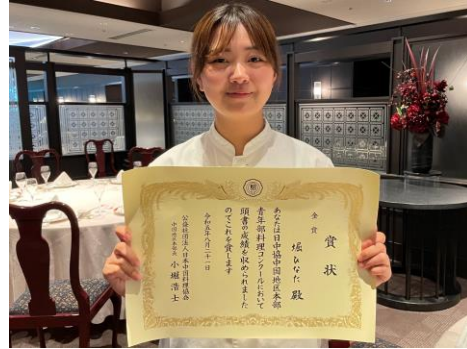 賞状
金賞
堀ひなた 殿
あなたは日中協中国地区本部
青年部料理コンクールにおいて
頭書の成績を収められました
のでこれを賞します
令和五年八月二十一日
公益社団法人日本中国料理協会
中国地区本部長 小堀浩士